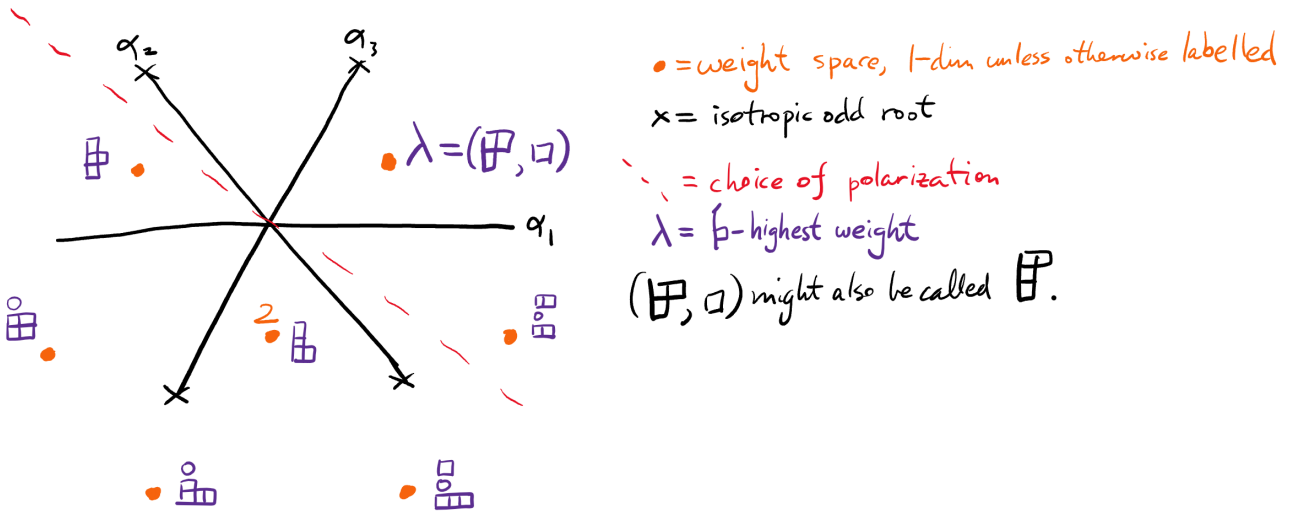 α₂
α₃
α₁
λ = ( , □)
2
• = weight space, 1-dim unless otherwise labelled
× = isotropic odd root
= choice of polarization
λ = 𝔟-highest weight
( , □) might also be called .